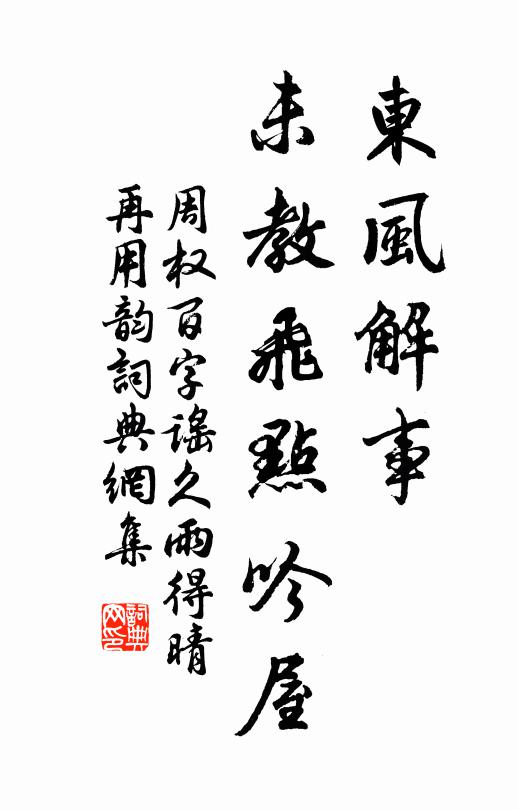 東風解事
未教飛點吟屋
周权百字謠久雨得晴
再用韵詞典網集
詞典网印